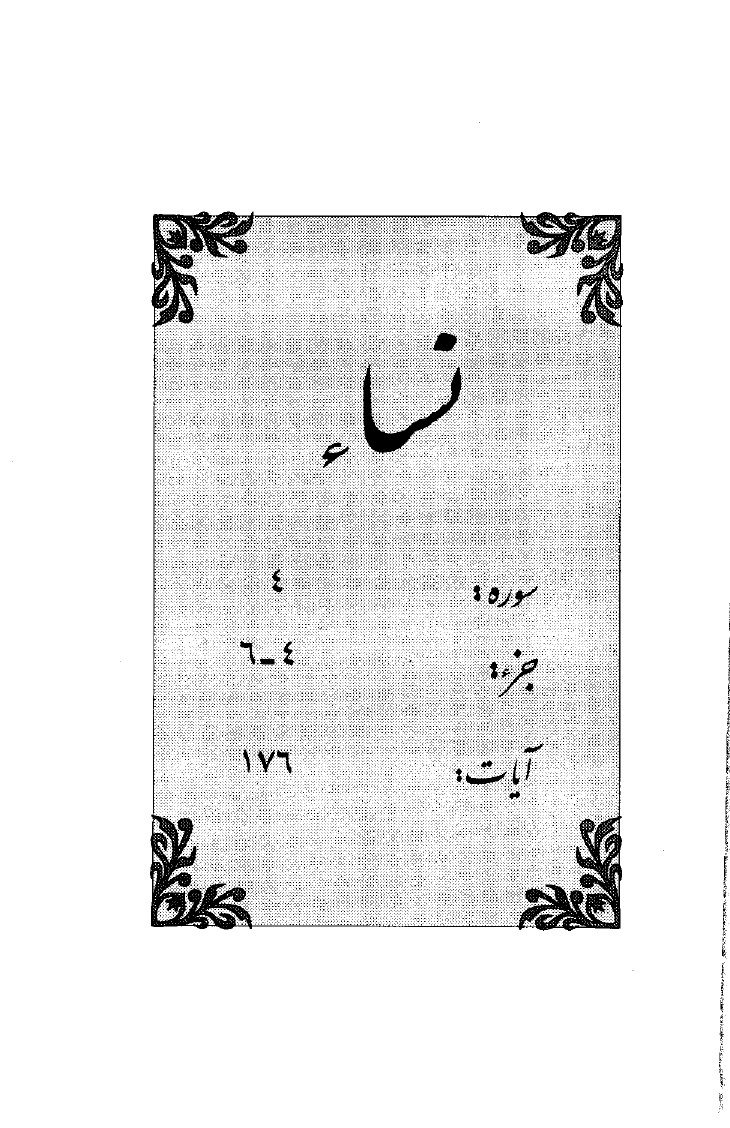 نساء
سوره: ٤
جزء: ٤ـ٦
آیات: ١٧٦